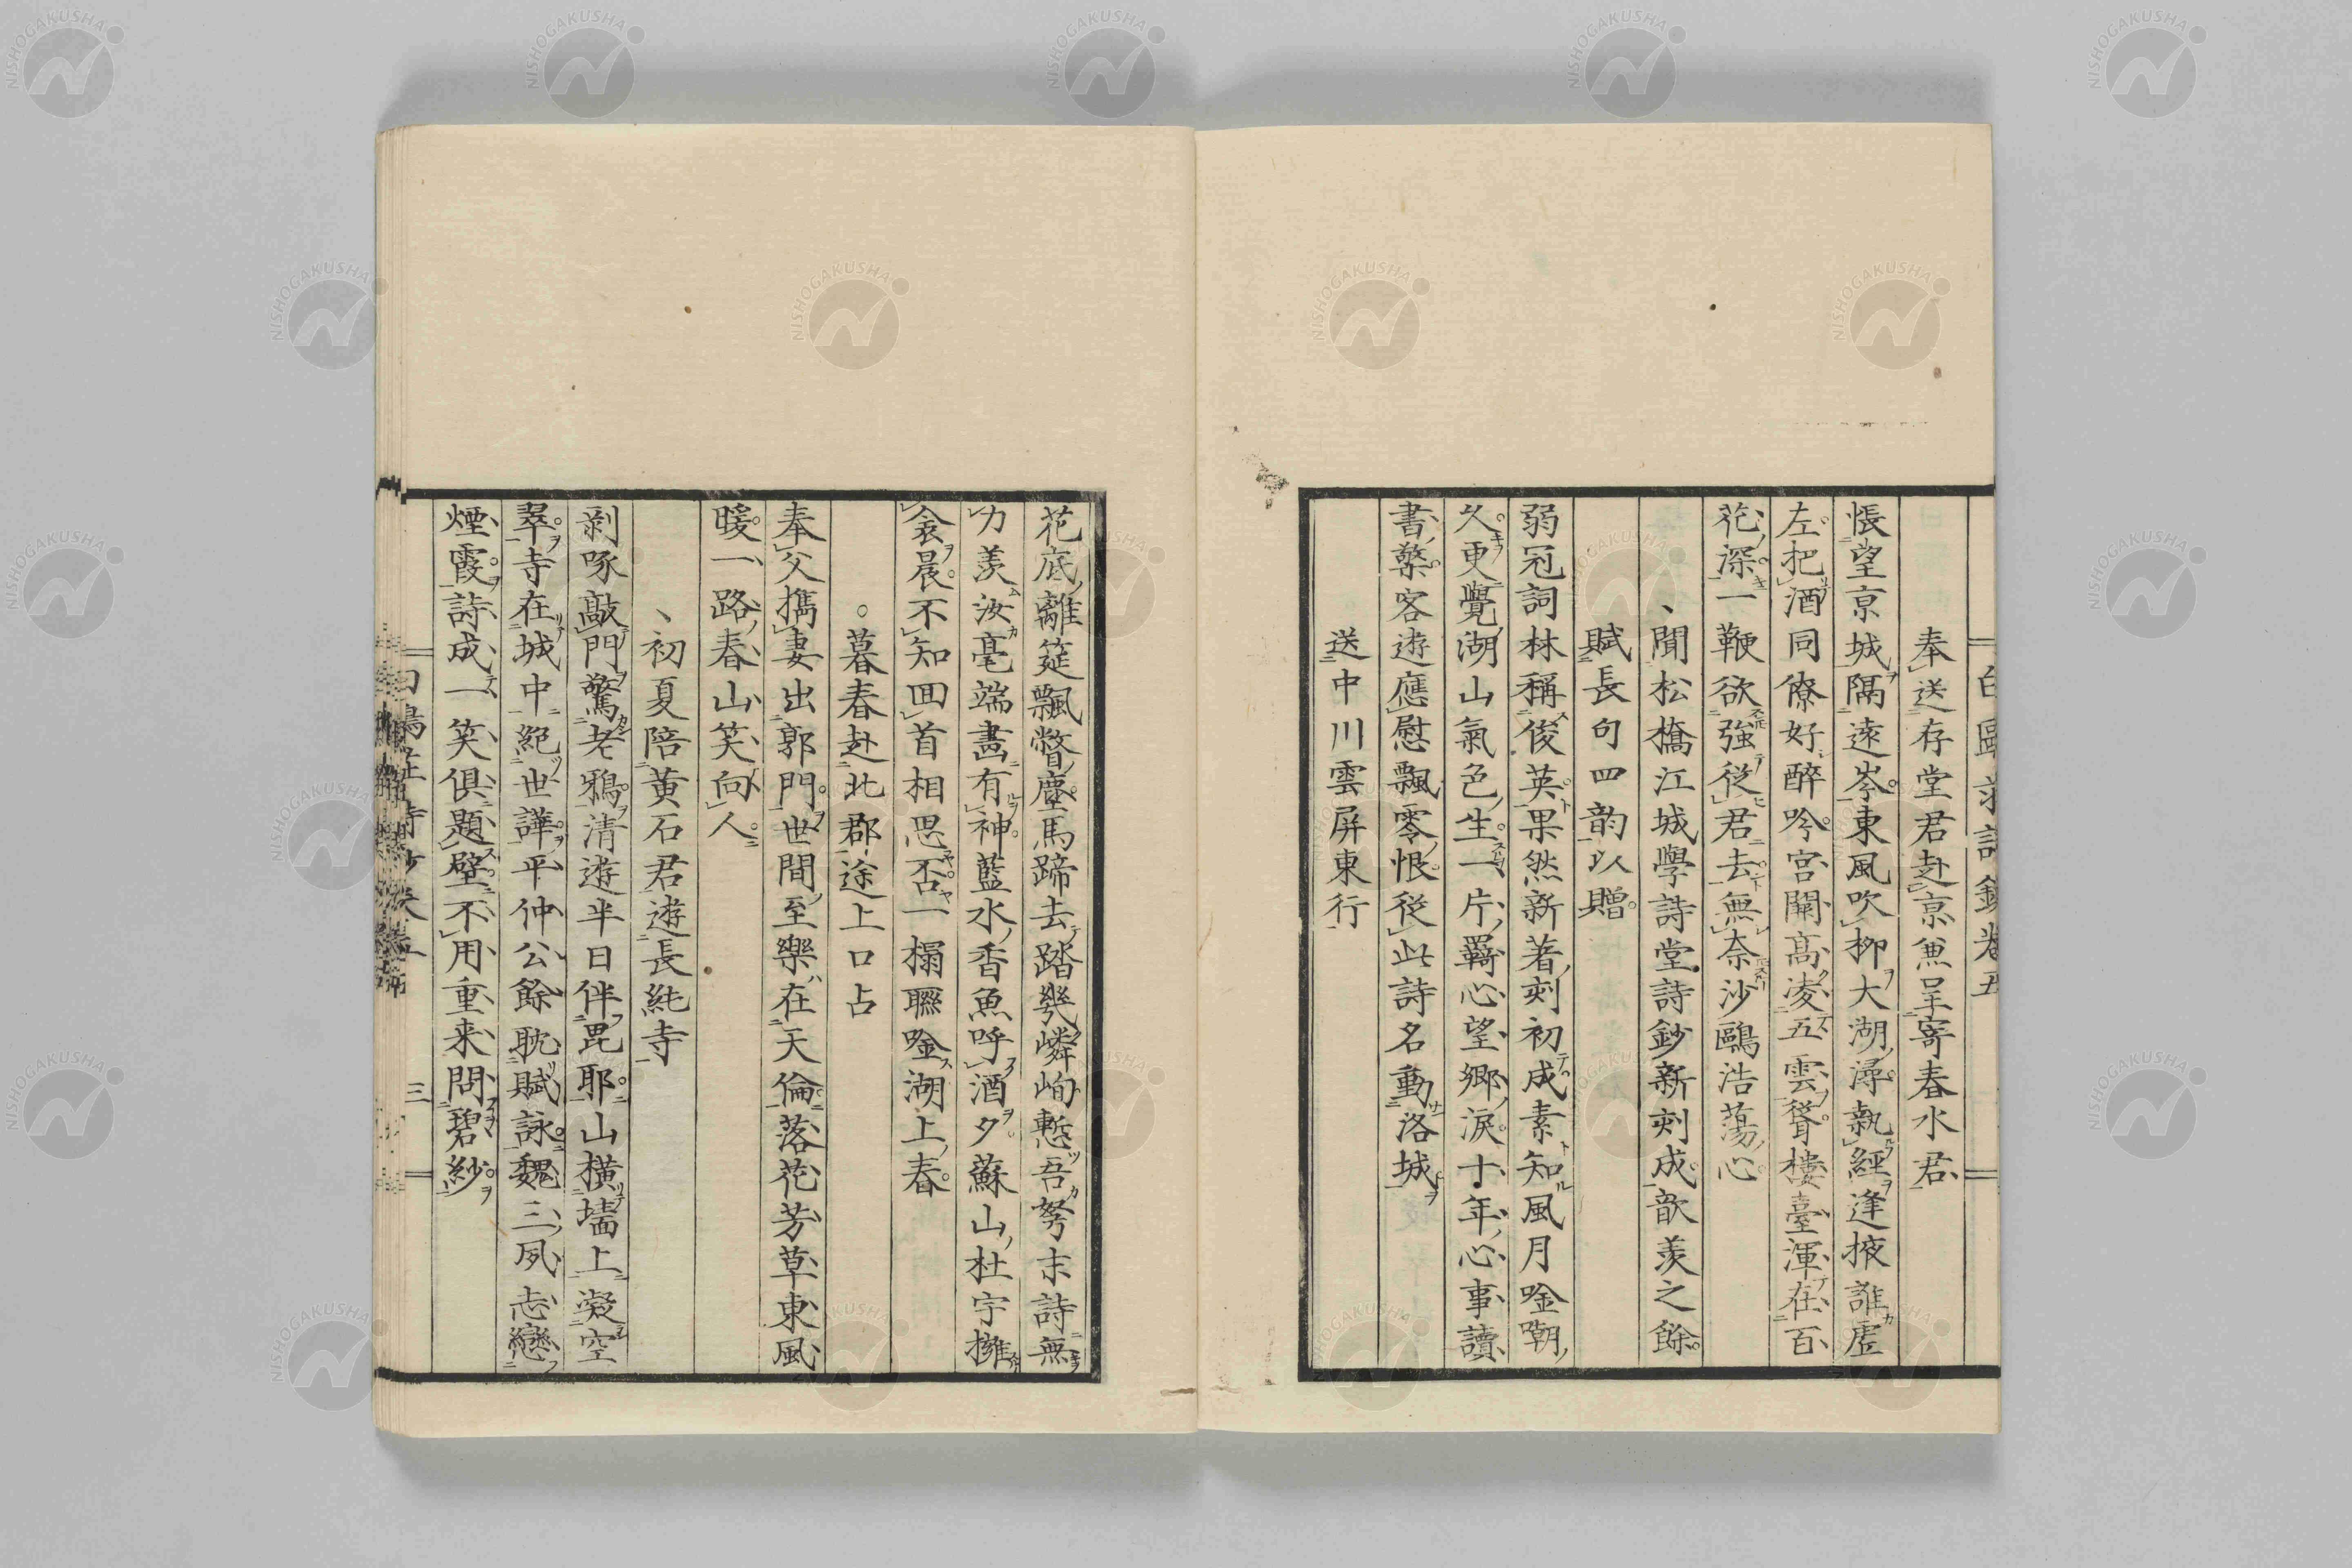 奉送存堂君赴京兼呈寄春水君
悵望京城隅遠岑東風吹柳大湖潯執經逢掖誰虛
左把酒同僚好醉吟宮闕高凌五雲聳樓臺渾在百
花深一鞭欲強從君去無奈沙鷗浩蕩心
聞松橋江城學詩堂詩鈔新刻成歆羨之餘
賦長句四韵以贈
弱冠詞林稱俊英果然新著刻初成素知風月唫嘲
久更覺湖山氣色生一片羇心望鄉淚十年心事讀
書檠客遊應慰飄零恨從此詩名動洛城
送中川雲屏東行
花底離筵飄瞥塵馬蹄去踏幾嶙峋慙吾弩末詩無
力羨汝毫端畫有神藍水香魚呼酒夕蘇山杜宇擁
衾晨不知囬首相思否一榻聯唫湖上春
暮春赴北郡途上口占
奉父攜妻出郭門世間至樂在天倫落花芳草東風
暖一路春山笑向人
初夏陪黃石君遊長純寺
剥啄敲門驚老鴉清遊半日伴毘耶山橫墻上凝空
翠寺在城中絕世譁平仲公餘耽賦詠魏三夙志戀
煙霞詩成一笑俱題壁不用重来問碧紗
三
NISHOGAKUSHA